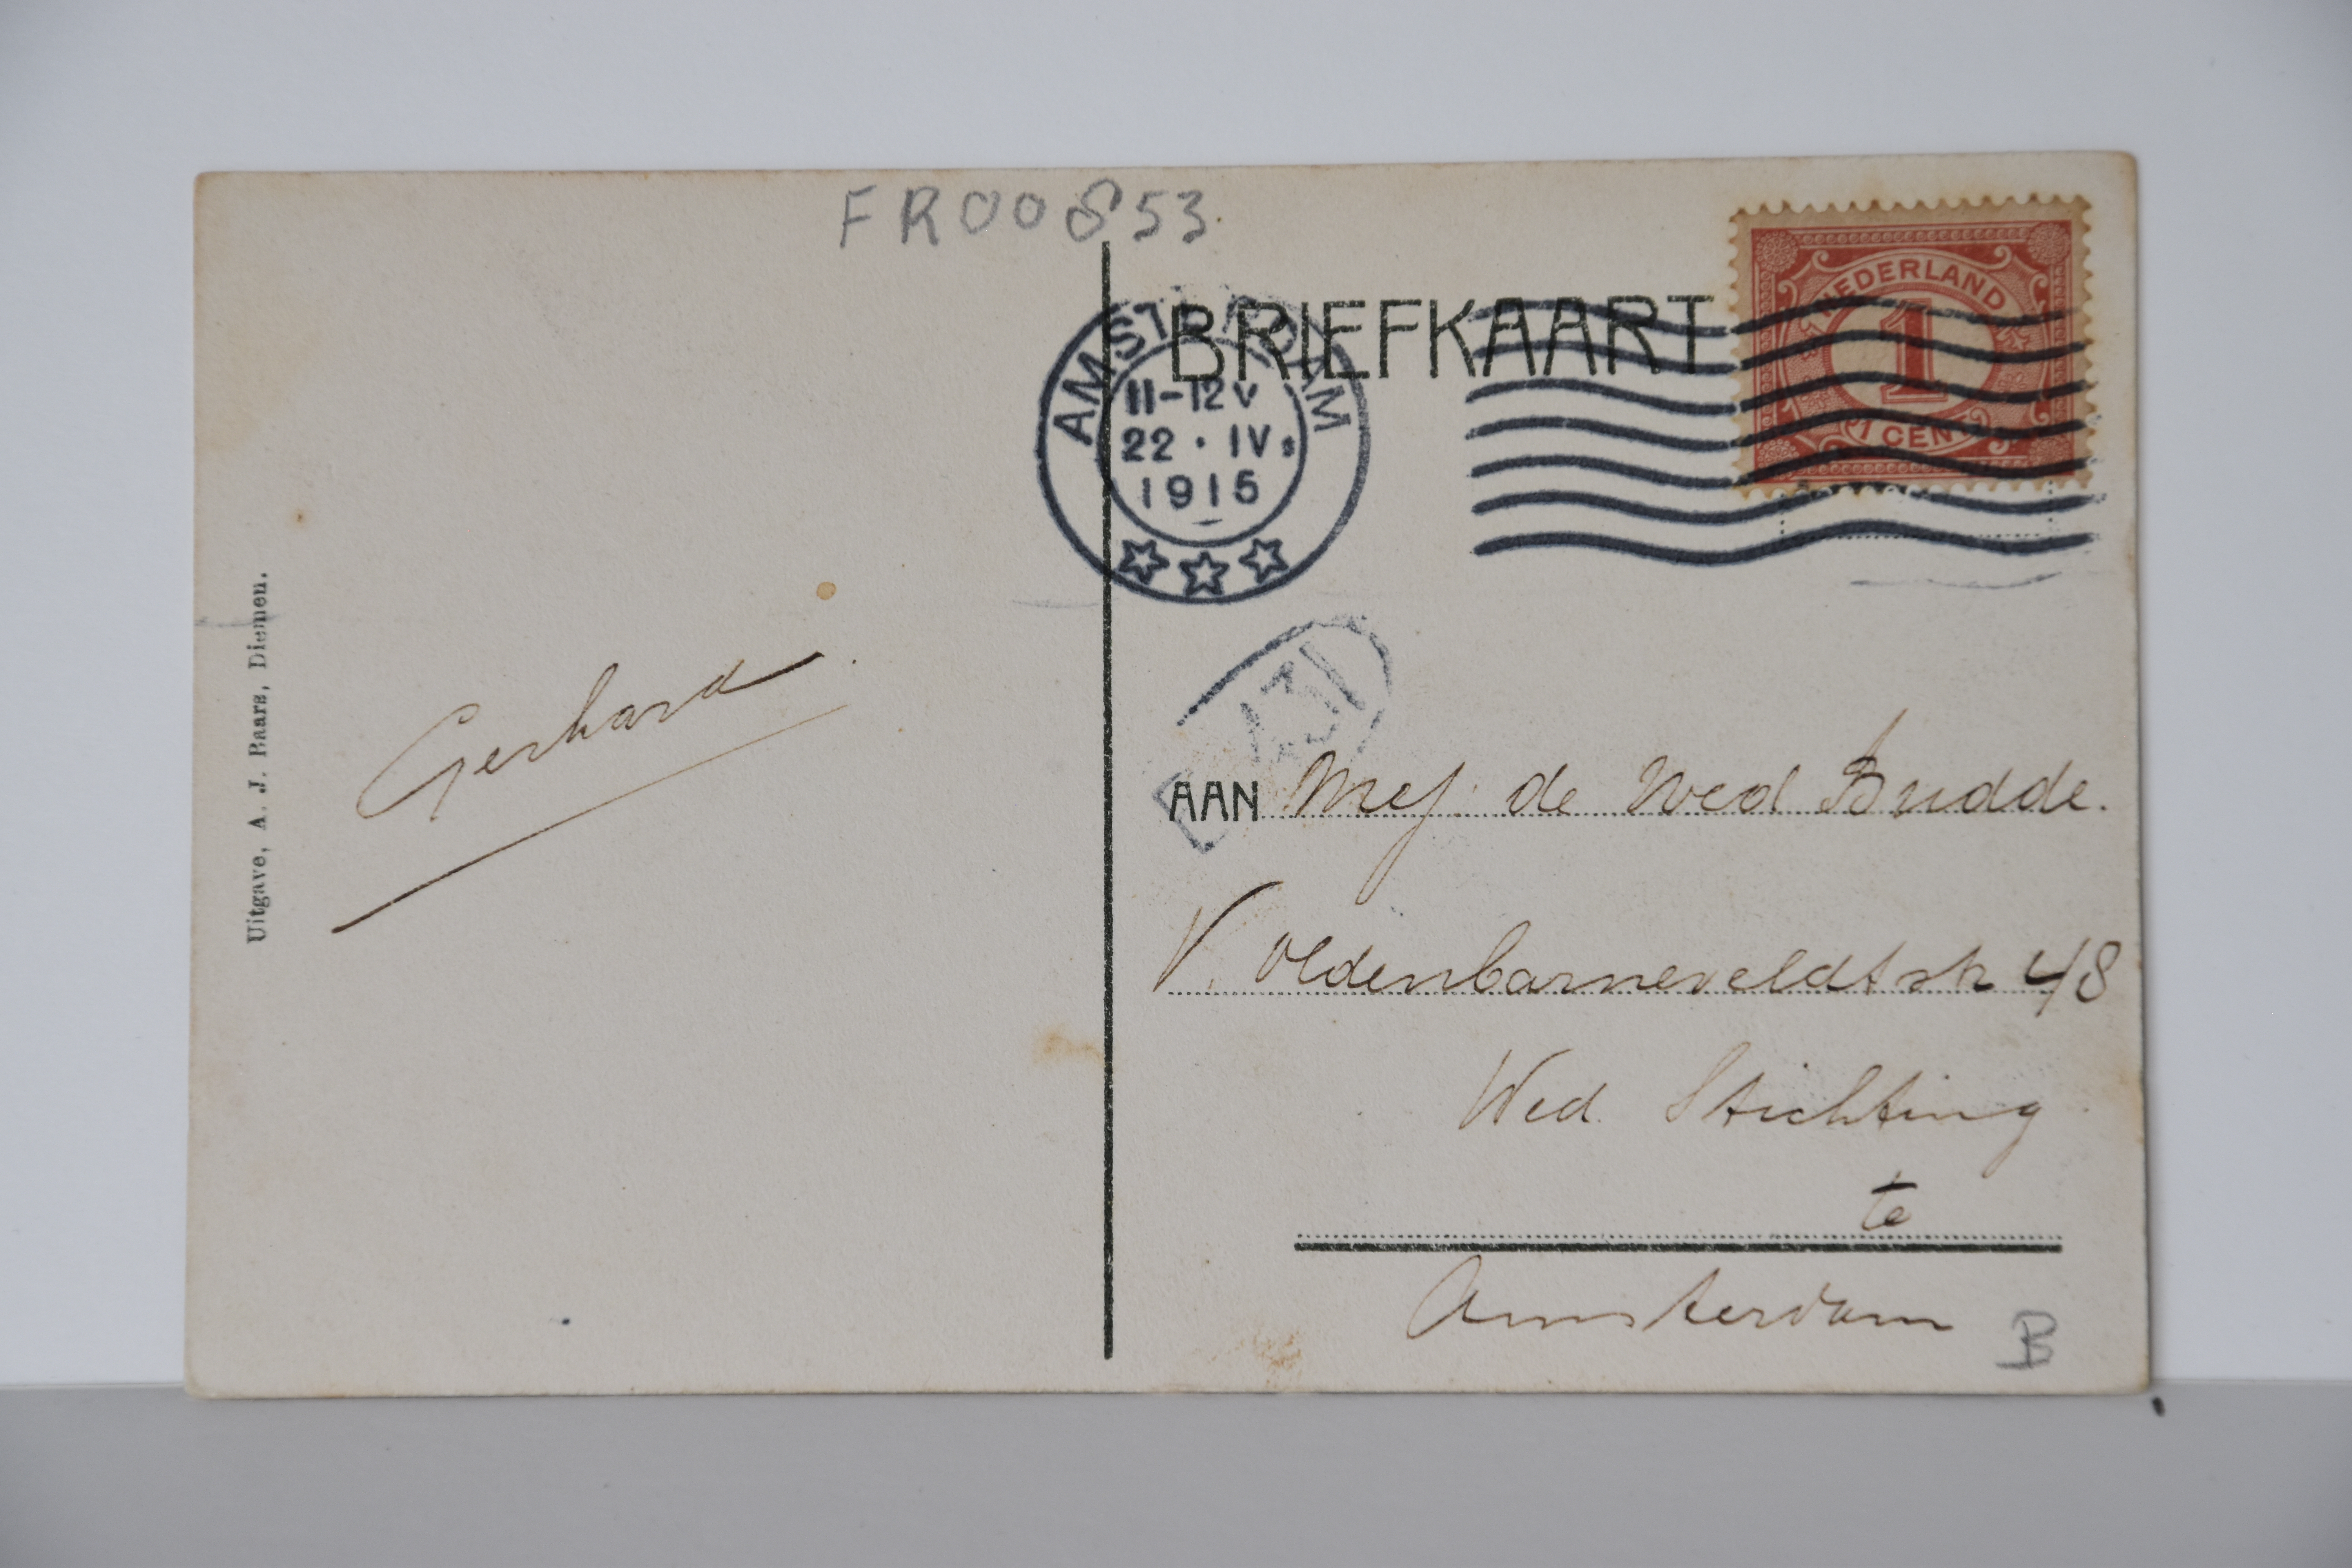 FR00853
BRIEFKAART
NEDERLAND
1
1 CENT
AMSTERDAM
11-12 V
22 · IV
1915
Uitgave, A. J. Baars, Diemen.
Gerhard
AAN Mej. de Wed Budde.
V. Oldenbarneveldtstr 48
Wed. Stichting
te
Amsterdam
B